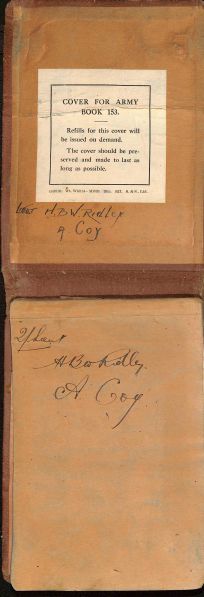 COVER FOR ARMY
BOOK 153.
Refills for this cover will
be issued on demand.
The cover should be pre-
served and made to last as
long as possible.
Lieut H.B.W. Ridley
A Coy
2/Lieut
H B W Ridley.
A Coy